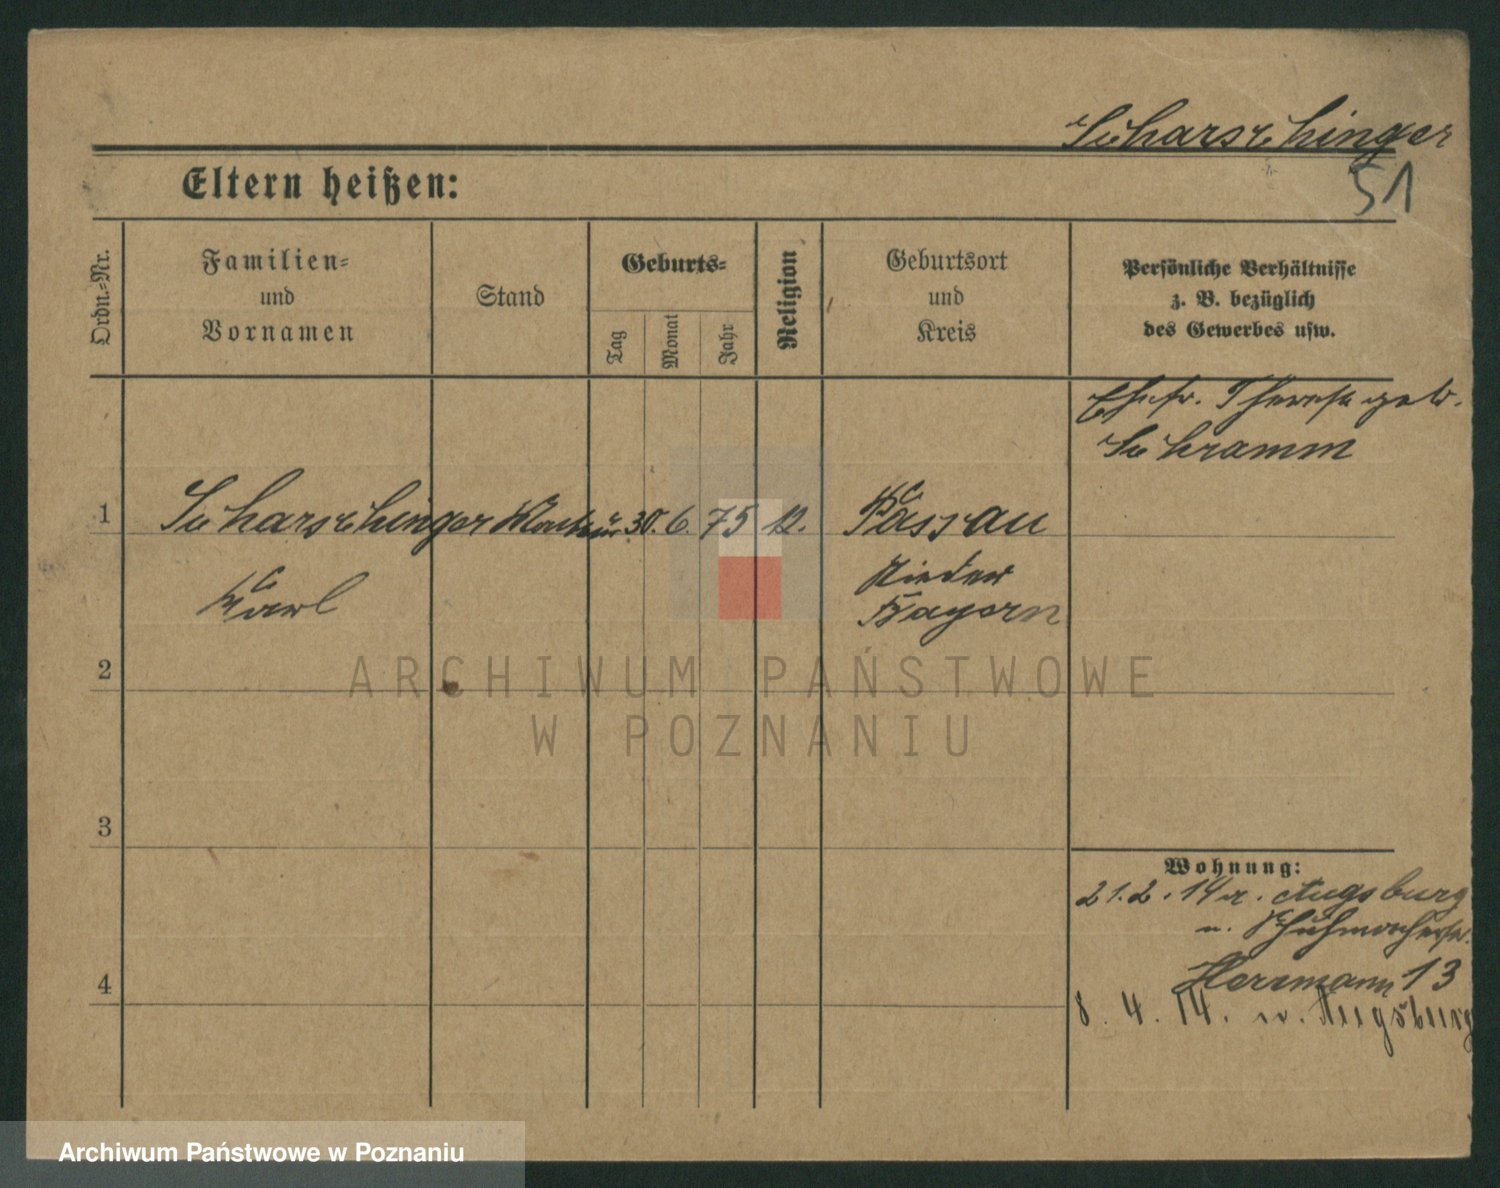 Scharschinger
51
Eltern heißen:
Ordn.-Nr.
Familien-
und
Vornamen
Stand
Geburts-
Tag
Monat
Jahr
Religion
Geburtsort
und
Kreis
Persönliche Verhältnisse
z. B. bezüglich
des Gewerbes usw.
Ehefr. Therese geb.
Schramm
1 Scharschinger 30. 6. 75 Passau
Karl Nieder
Bayern
2
ARCHIWUM PAŃSTWOWE
W POZNANIU
3
Wohnung:
21.2.14 a. Augsburg
n.
Herrmann 13
4
8. 4. 14. n. Augsburg
Archiwum Państwowe w Poznaniu